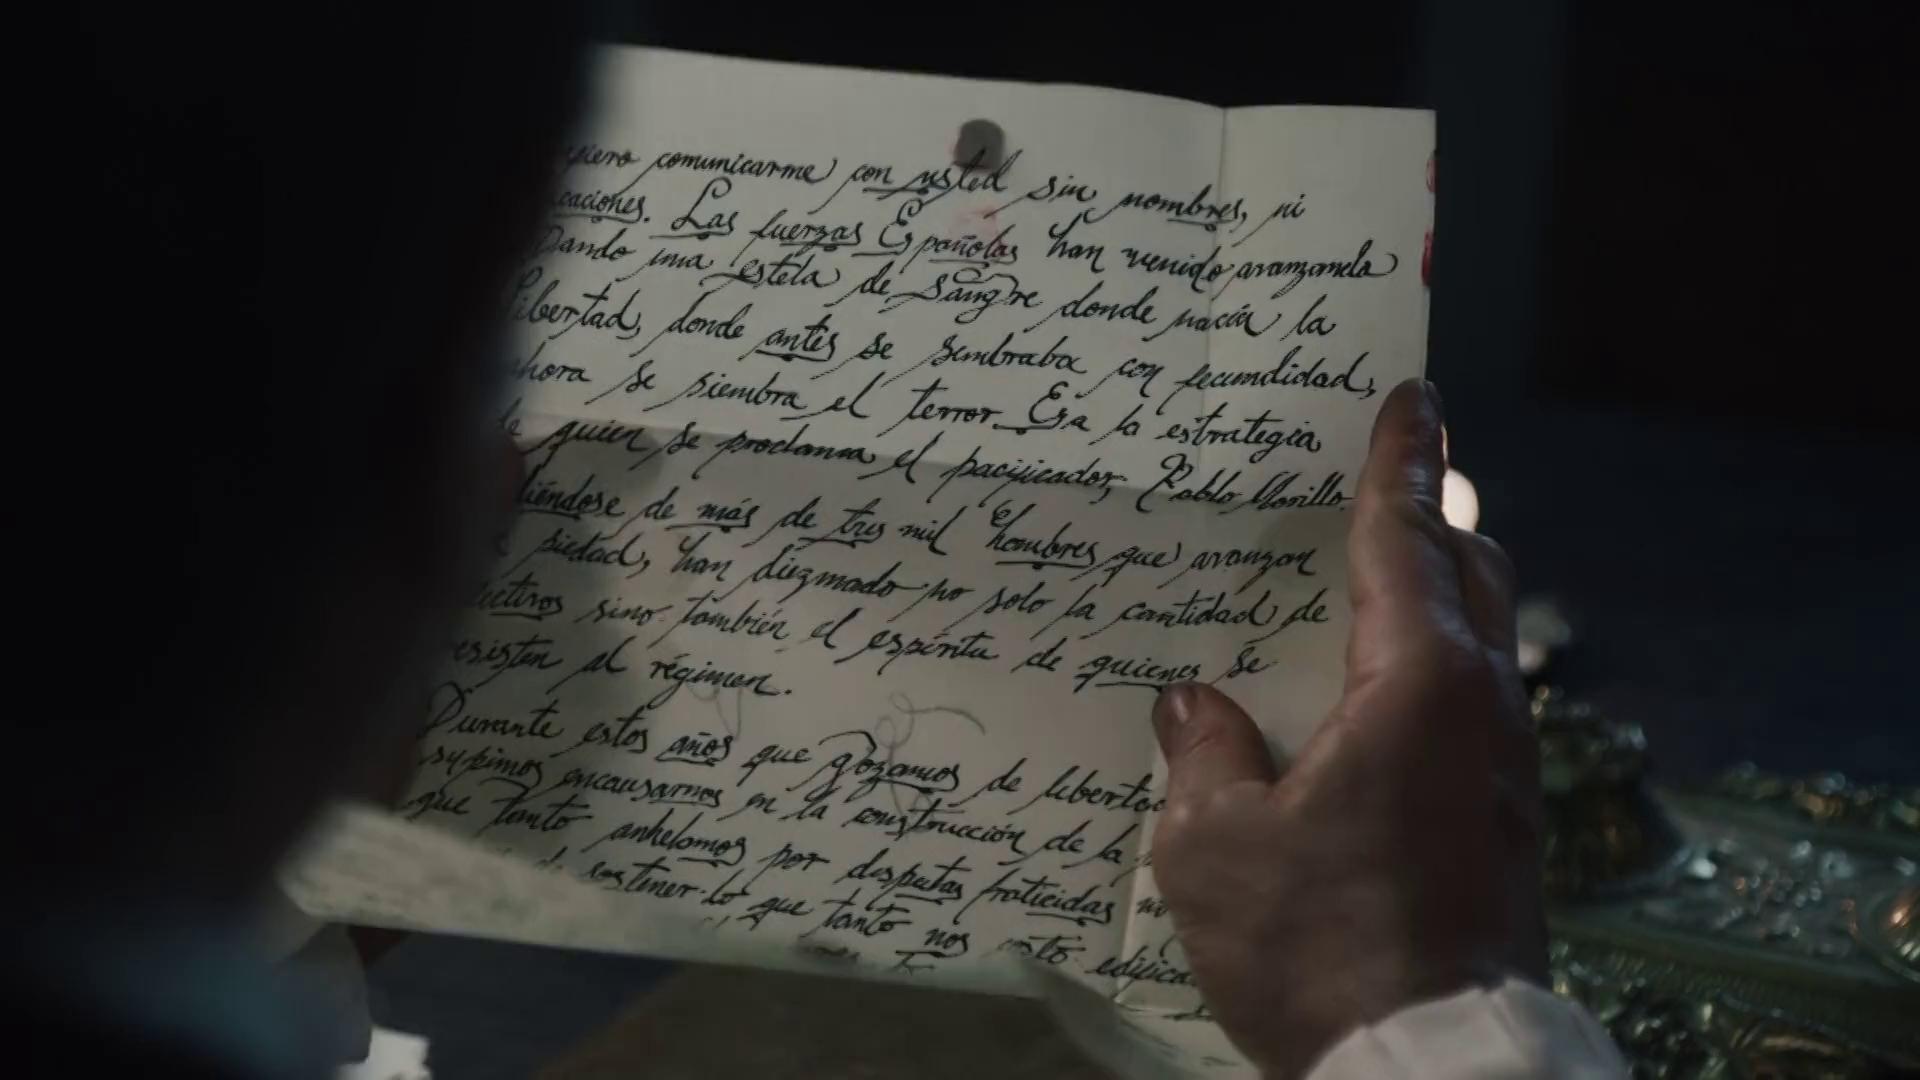 comunicarme con usted sin nombres, ni
caciones. Las fuerzas Españolas han venido avanzando
Dando una estela de Sangre donde nacía la
libertad, donde antes se sembraba con fecundidad,
ahora se siembra el terror. Esa la estrategia
de quien se proclama el pacificador, Pablo Morillo.
liéndose de más de tres mil hombres que avanzan
piedad, han diezmado no solo la cantidad de
sino también el espíritu de quienes se
resisten al régimen.
Durante estos años que gozamos de libertad
supimos encausarnos en la construcción de la
que tanto anhelamos por disputas fraticidas
sostener lo que tanto nos costó edifica